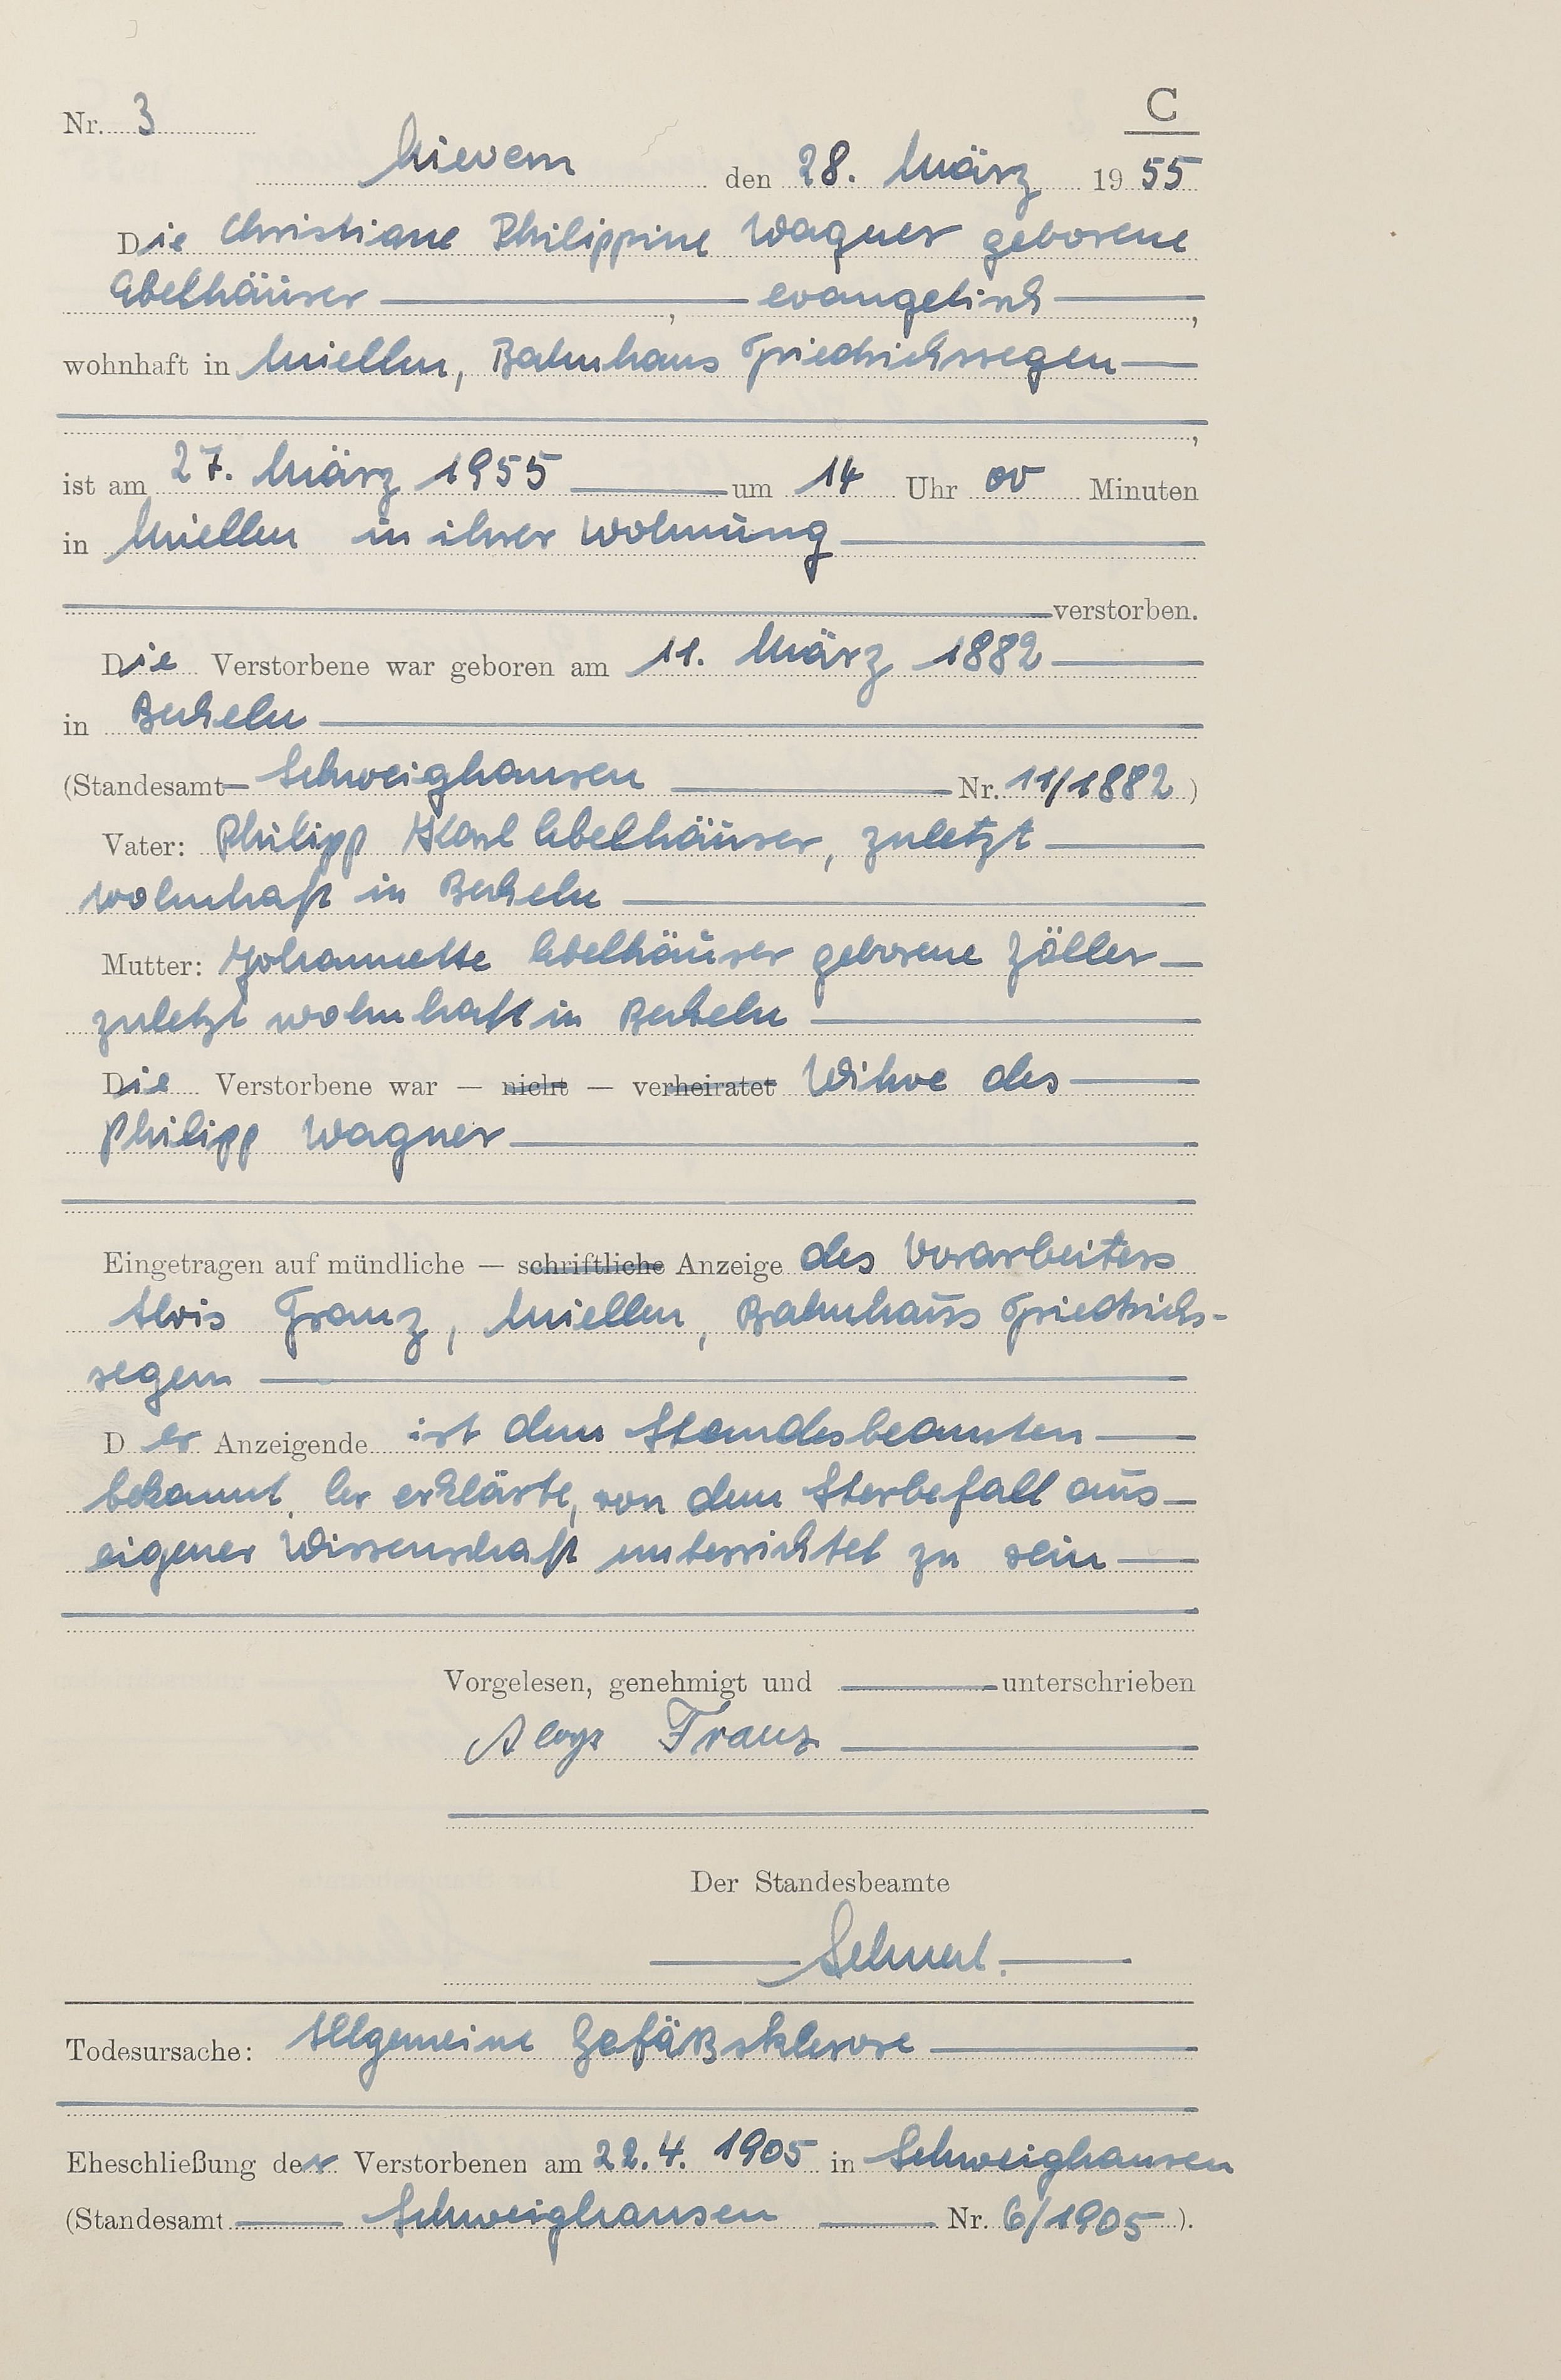 C
Nr. 3
Nievern den 28. März 1955
Die Christiane Philippine Wagner geborene
Ebelhäuser, evangelisch,
wohnhaft in Miellen, Bahnhaus Friedrichssegen
,
ist am 27. März 1955 um 14 Uhr 00 Minuten
in Miellen in ihrer Wohnung
verstorben.
Die Verstorbene war geboren am 11. März 1882
in Becheln
(Standesamt Schweighausen Nr. 11/1882)
Vater: Philipp Karl Ebelhäuser, zuletzt
wohnhaft in Becheln
Mutter: Johannette Ebelhäuser geborene Zöller
zuletzt wohnhaft in Becheln
Die Verstorbene war — nicht — verheiratet Witwe des
Philipp Wagner
Eingetragen auf mündliche — schriftliche Anzeige des Vorarbeiters
Alois Franz, Miellen, Bahnhaus Friedrichs-
segen
Der Anzeigende ist dem Standesbeamten
bekannt. Er erklärte, von dem Sterbefall aus
eigener Wissenschaft unterrichtet zu sein
Vorgelesen, genehmigt und unterschrieben
Aloys Franz
Der Standesbeamte
Todesursache: Allgemeine Gefäßsklerose
Eheschließung der Verstorbenen am 22.4. 1905 in Schweighausen
(Standesamt Schweighausen Nr. 6/1905).